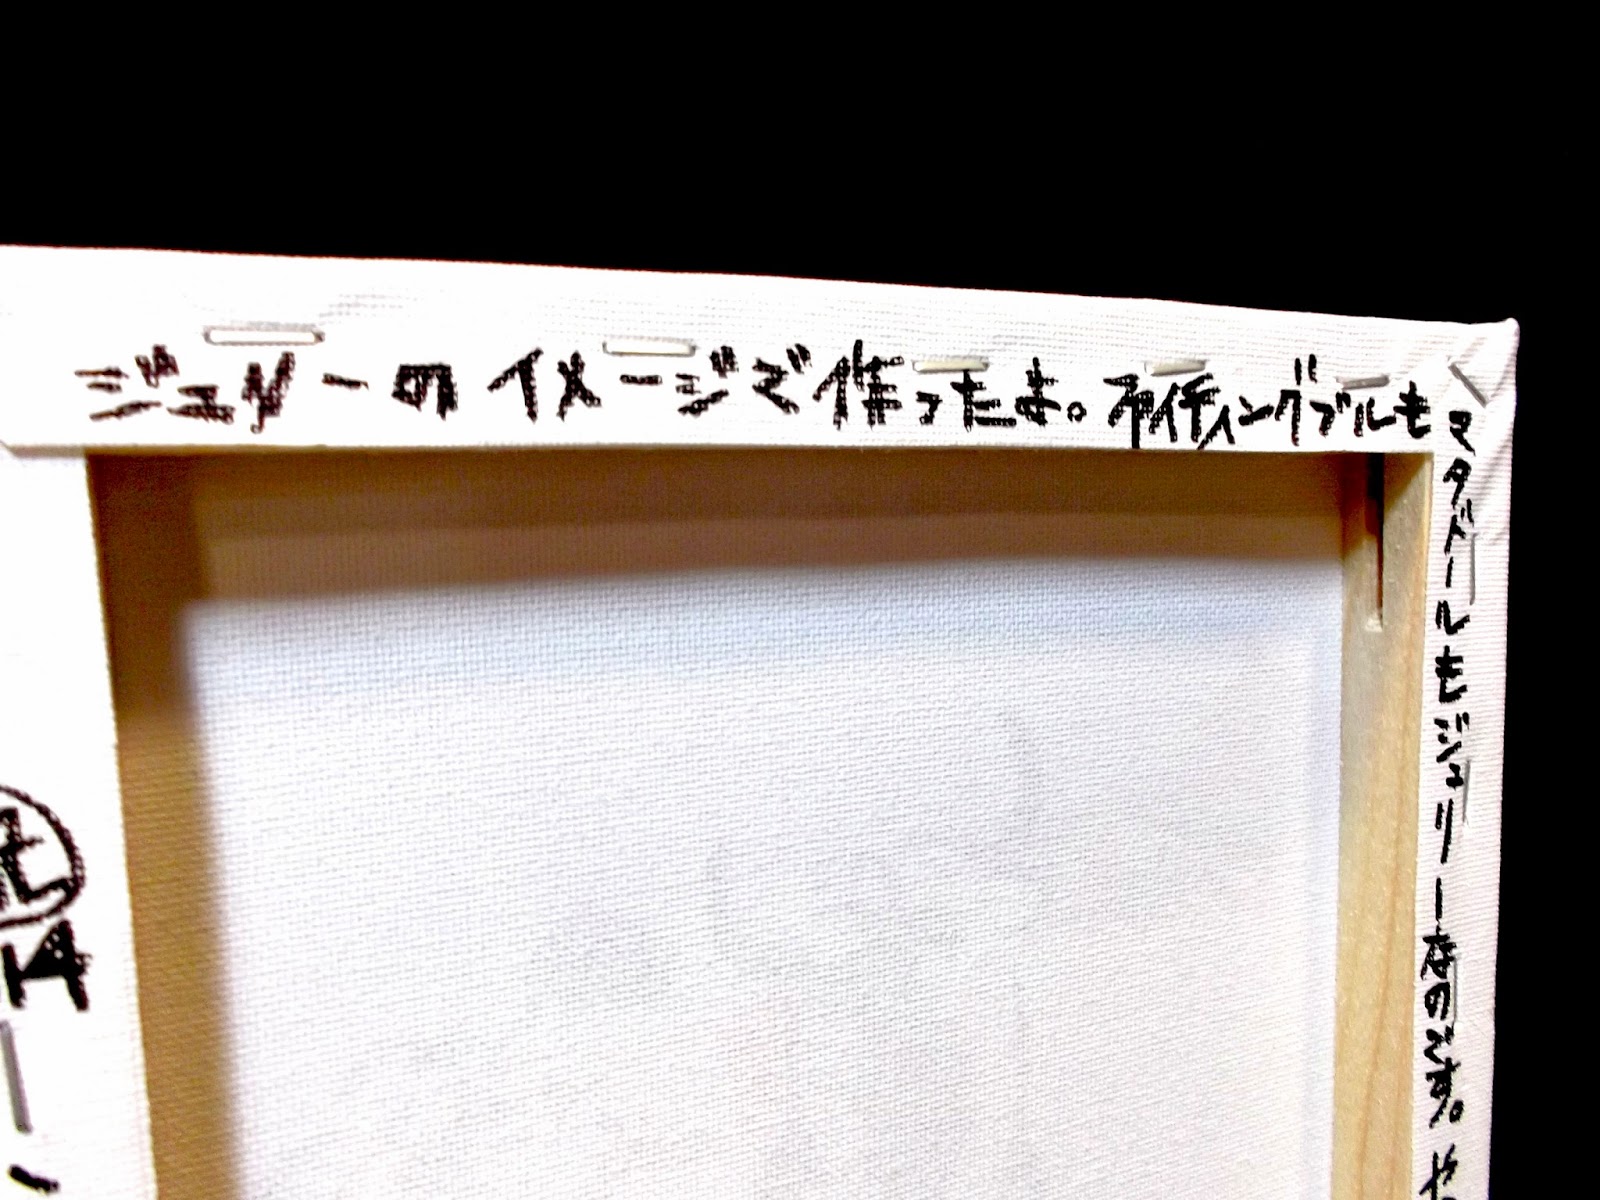 ジュリーのイメージで作ったよ。ファイティングブルも
マタドールもジュリーなのです。や